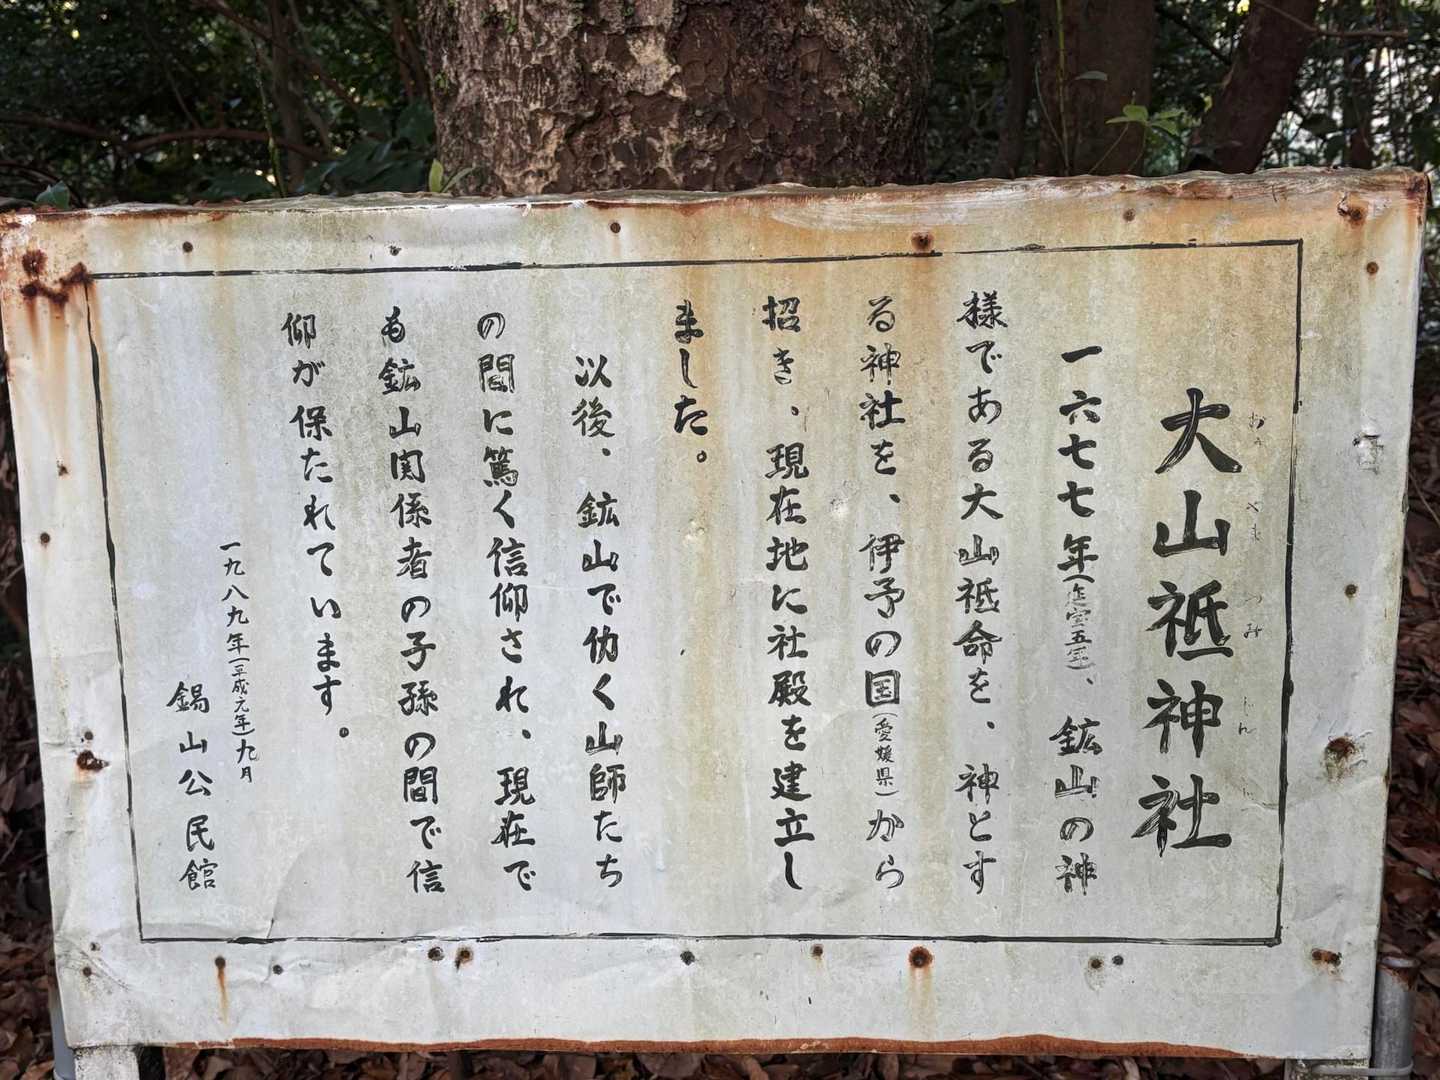 大山祇神社
おおやまつみじんじゃ
一六七七年(延宝五年)、鉱山の神
様である大山祇命を、神とす
る神社を、伊予の国(愛媛県)から
招き、現在地に社殿を建立し
ました。
以後、鉱山で働く山師たち
の間に篤く信仰され、現在で
も鉱山関係者の子孫の間で信
仰が保たれています。
一九八九年(平成元年)九月
錫山公民館